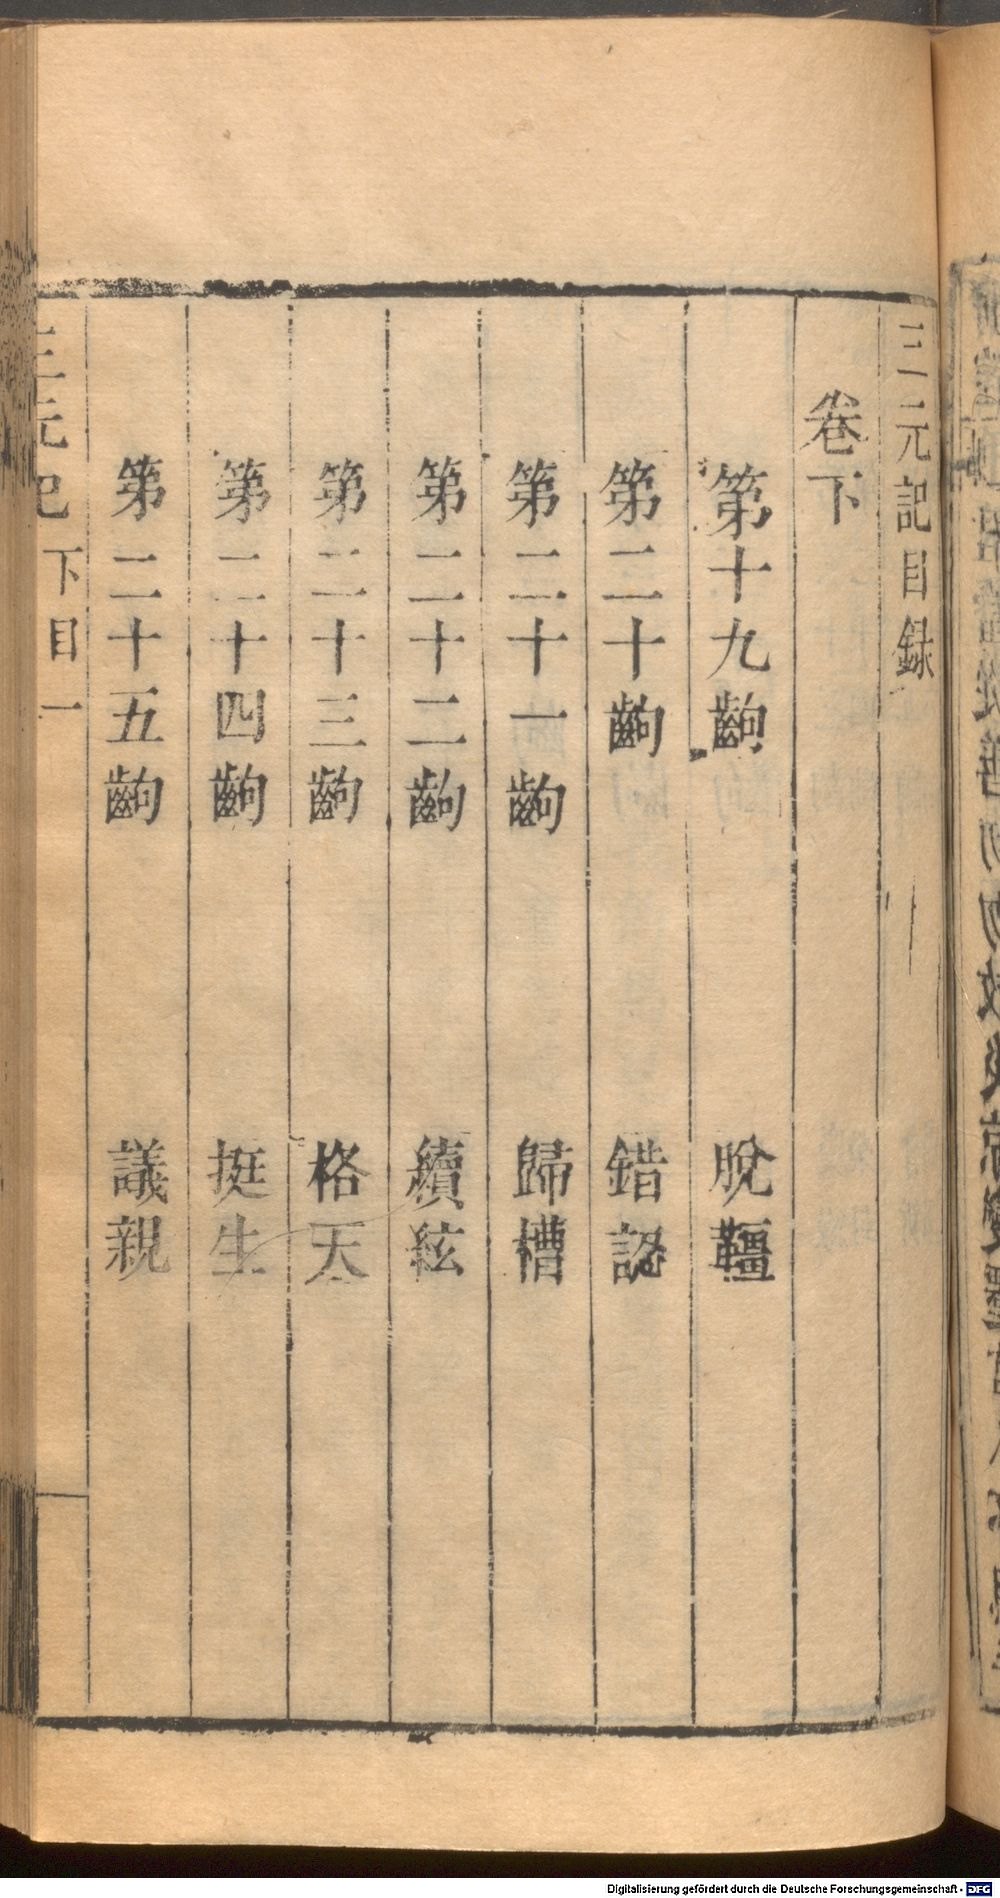 三元記目錄
卷下
第十九齣 脫韁
第二十齣 錯認
第二十一齣 歸槽
第二十二齣 續絃
第二十三齣 格天
第二十四齣 挺生
第二十五齣 議親
三元記 下目 一
Digitalisierung gefördert durch die Deutsche Forschungsgemeinschaft - DFG